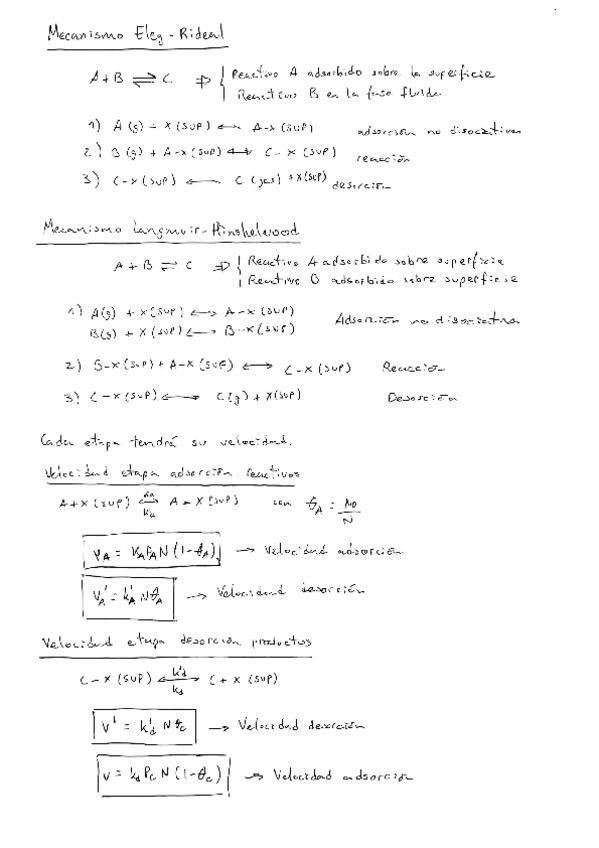 Mecanismo Eley-Rideal
A + B ⇌ C ⇒ { Reactivo A adsorbido sobre la superficie
Reactivo B en la fase fluida
1) A(g) + X(SUP) ⟷ A-X(SUP) adsorción no disociativa
2) B(g) + A-X(SUP) ⟷ C-X(SUP) reacción
3) C-X(SUP) ⟵ C(gas) + X(SUP) desorción
Mecanismo Langmuir-Hinshelwood
A + B ⇌ C ⇒ { Reactivo A adsorbido sobre superficie
Reactivo B adsorbido sobre superficie
1) A(g) + X(SUP) ⟷ A-X(SUP)
B(g) + X(SUP) ⟷ B-X(SUP) Adsorción no disociativa
2) B-X(SUP) + A-X(SUP) ⟷ C-X(SUP) Reacción
3) C-X(SUP) ⟷ C(g) + X(SUP) Desorción
Cada etapa tendrá su velocidad.
Velocidad etapa adsorción reactivos
A + X(SUP) ⇌ A-X(SUP) con θA = No/N
VA = KA PA N (1-θA) → Velocidad adsorción
VA' = k'A N θA → Velocidad desorción
Velocidad etapa desorción productos
C-X(SUP) k'd ⇌ kd C + X(SUP)
V' = k'd N θc → Velocidad desorción
V = kd Pc N (1-θc) → Velocidad adsorción